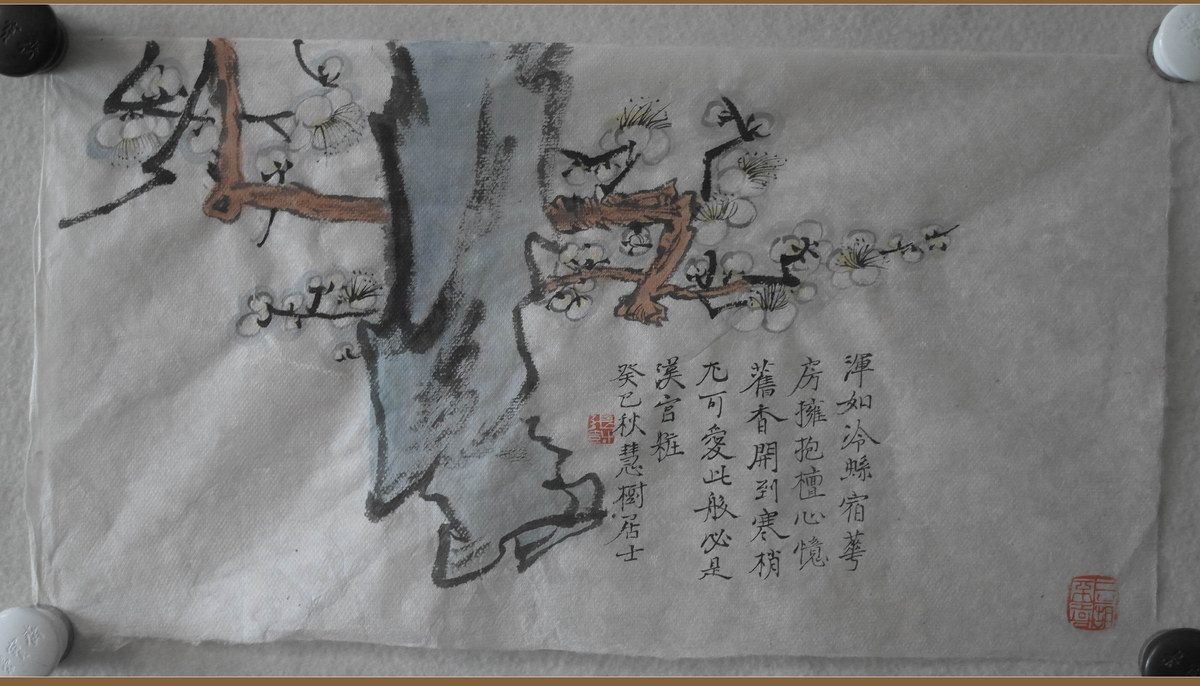 渾如冷蝶宿華
房擁抱檀心憶
舊香開到寒梢
尤可愛此般必是
漢宮粧
癸巳秋慧樹居士